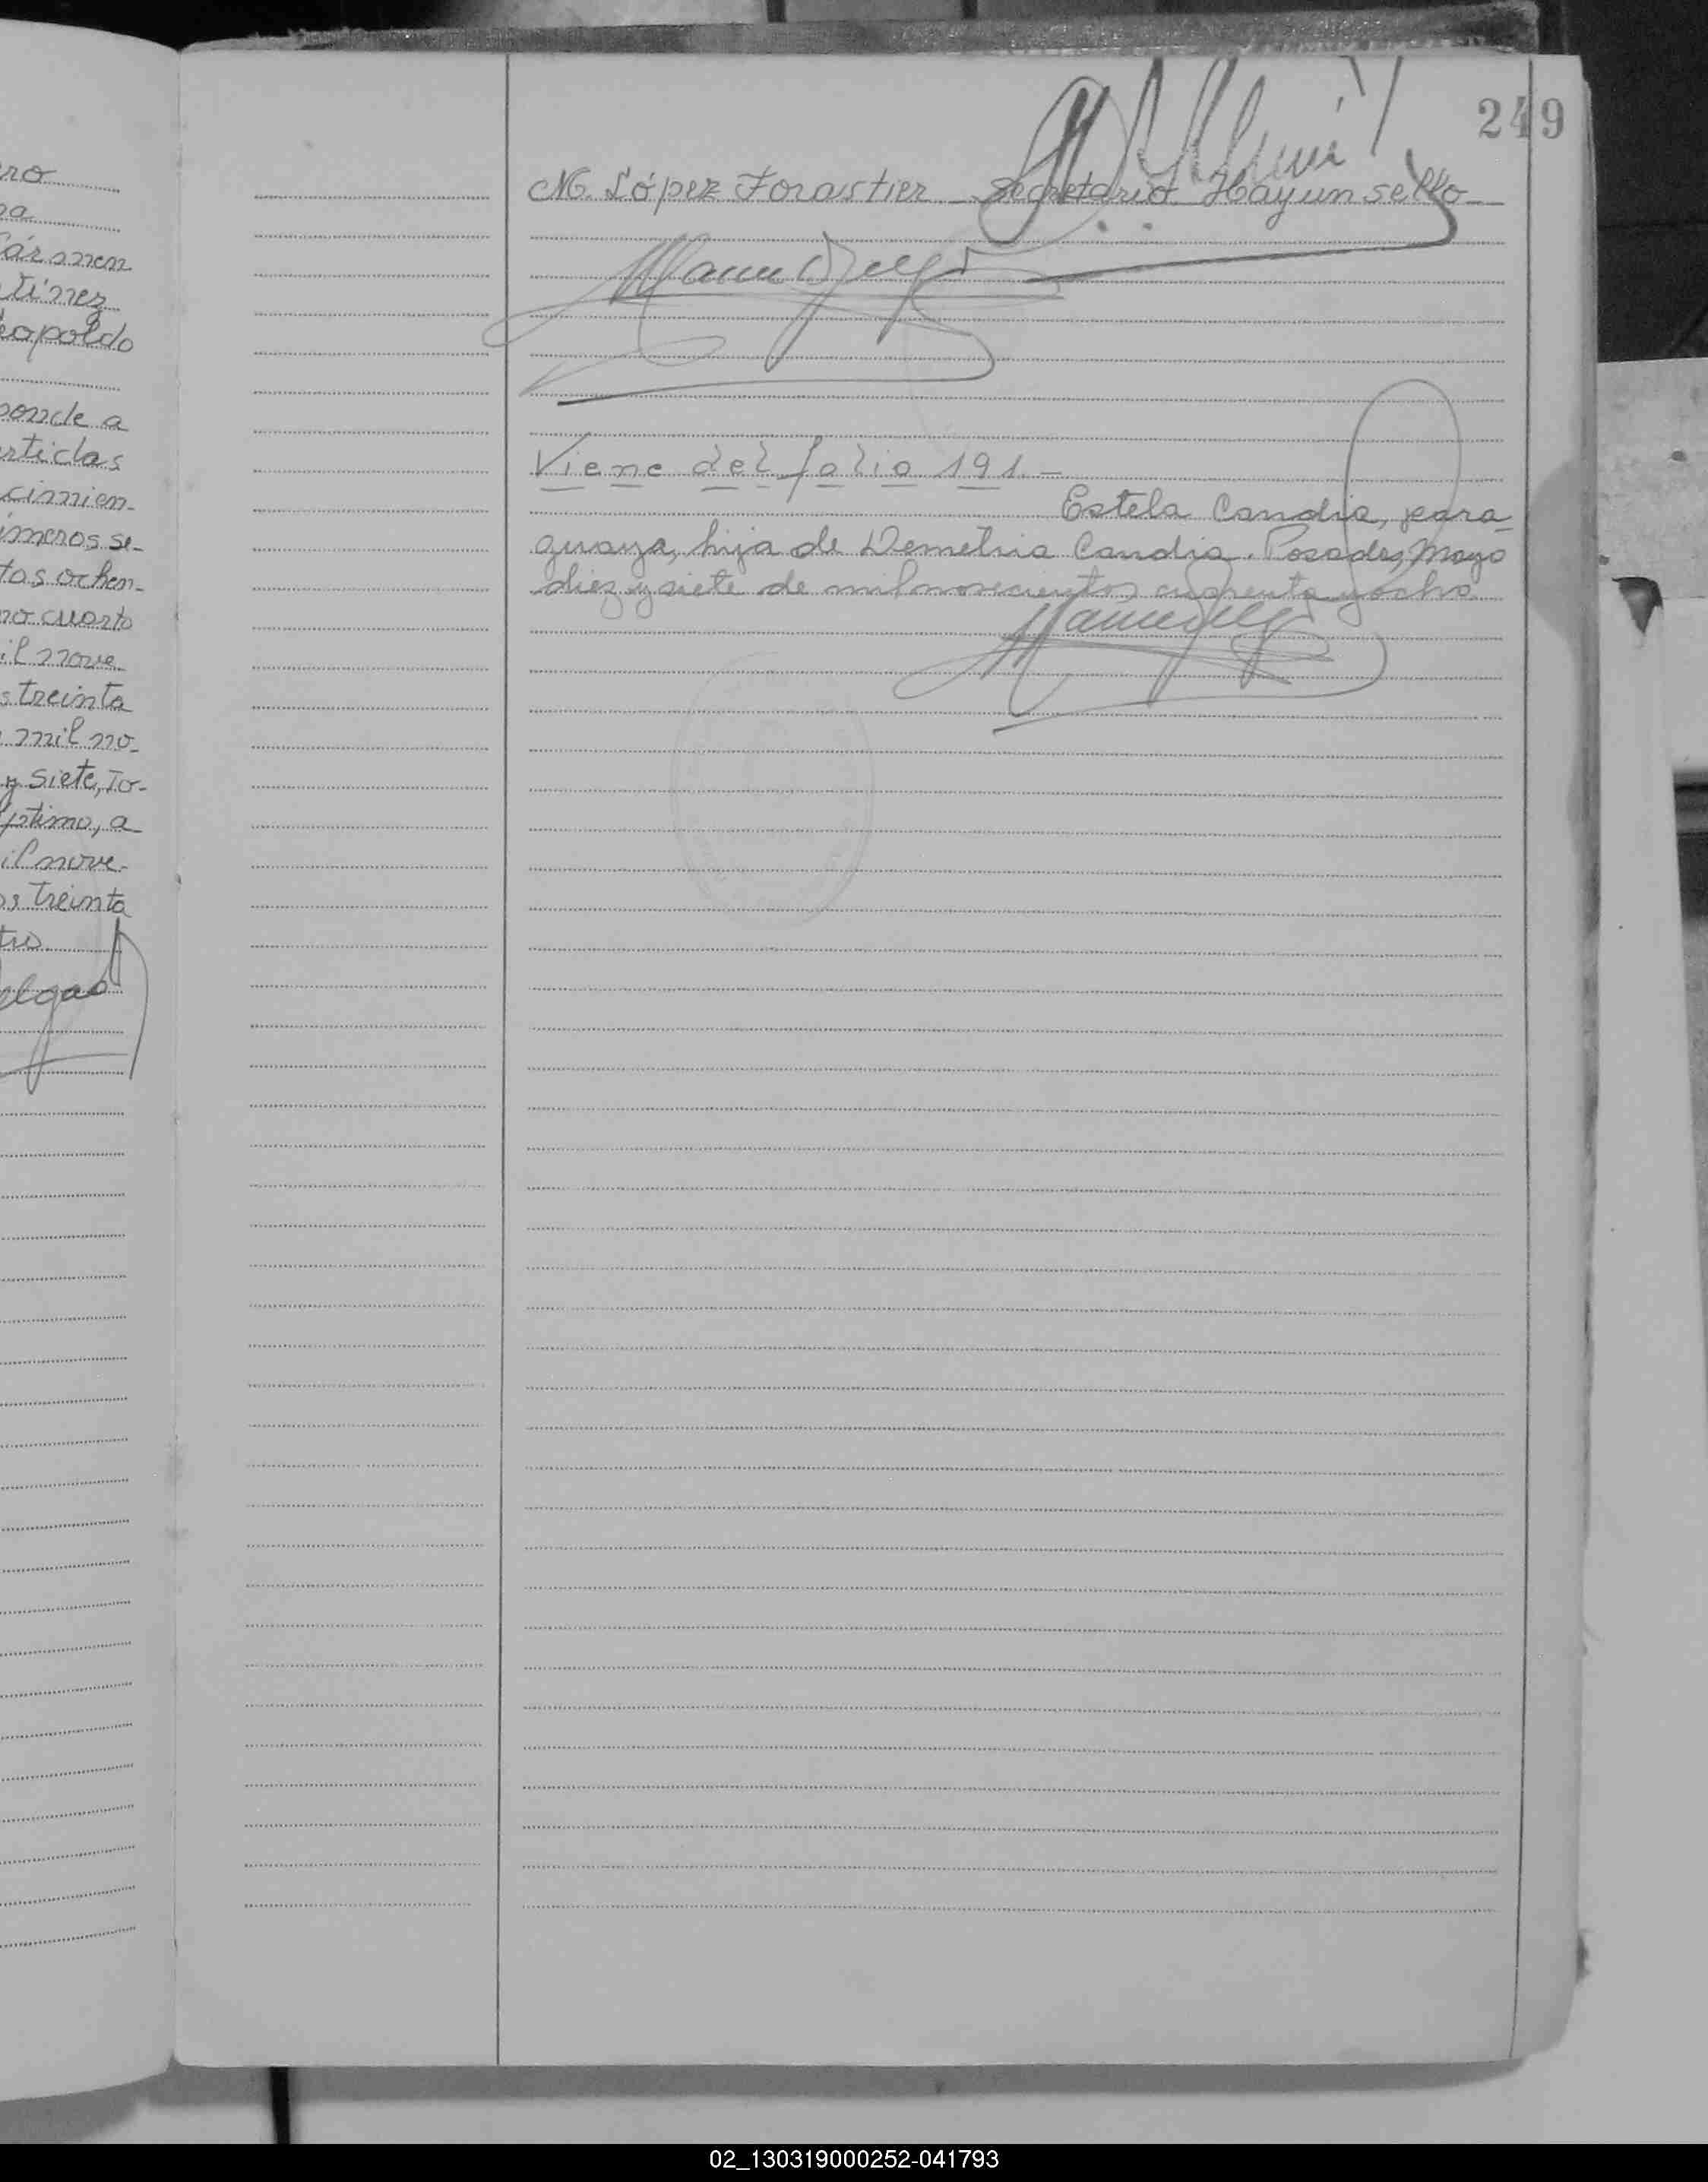 ro
a
ármen
tínez
eopoldo
ponde a
artidas
cimien-
úmeros se-
tas ochen-
mo cuarto
il nove
s treinta
mil no-
y siete, To-
éptimo, a
il nove-
os treinta
tro
elgado
249
M. López Forastier Secretario Hay un sello
Viene del folio 191.-
Estela Candia, para-
guaya, hija de Demetria Candia. Posadas, Mayo
diez y siete de mil novecientos cuarenta y ocho
02_130319000252-041793